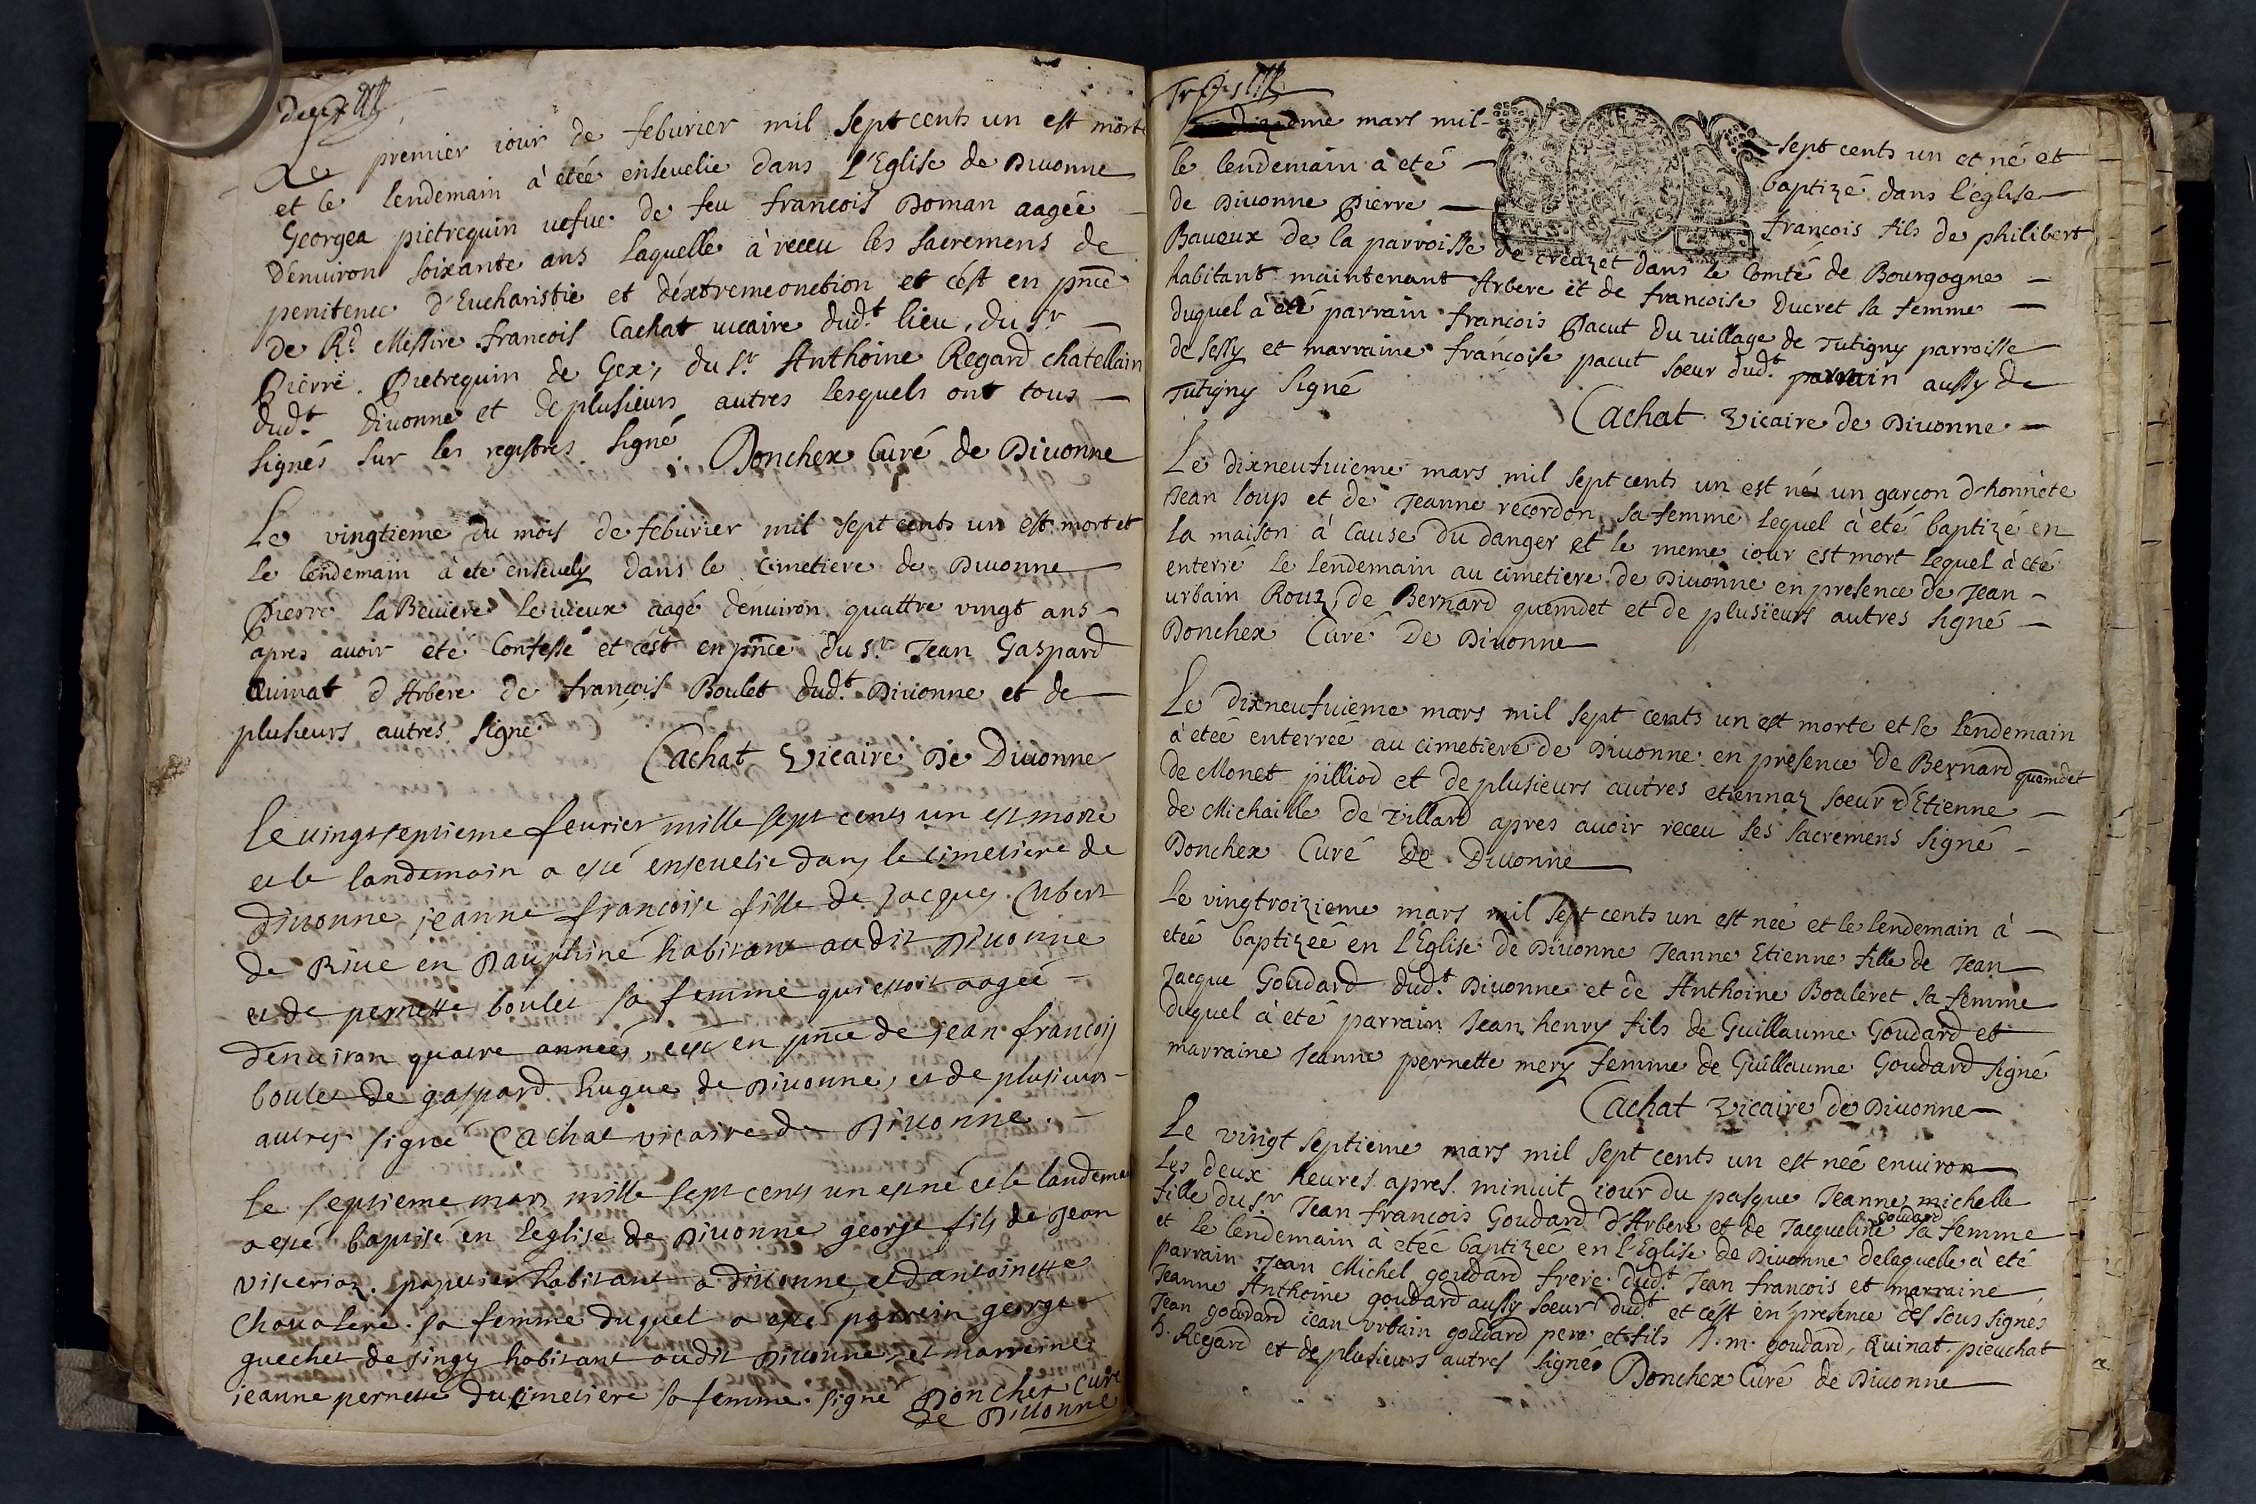 deux
Le premier iour de feburier mil sept cents un est morte
et le lendemain à étéé enseuelie dans l'Eglise de Diuonne
Georgea pietrequin uefue de feu françois Doman aagéé
d'enuiron soixante ans laquelle à receu les sacremens de
penitence d'Eucharistie et d'extremeonction et c'ést en pnce
de Rd Messire françois Cachat uicaire dudt lieu, du Sr
Pierre Pietrequin de Gex, du Sr Anthoine Regard chatellain
dudt Diuonne et de plusieurs autres lesquels ont tous
signés sur les registres signé Donchex Curé de Diuonne
Le vingtieme du mois de feburier mil sept cents un est mort et
le lendemain à eté enseuely dans le Cimetiere de Diuonne
Pierre la Beuiere le uieux aagé denuiron quattre vingt ans
apres auoir eté Confessé et c'ést en pnce du Sr Jean Gaspard
Quinat d'Arbere de françois Boulet dudt Diuonne et de
plusieurs autres signé
Cachat Vicaire De Diuonne
le uingt septieme feurier mille sept cents un est morte
et le landemain a esté enseuelie dans le cimetiere de
Diuonne jeanne françoise fille de Jacques Cubert
de Riue en Dauphiné habitant audit Diuonne
et de pernette boulet sa femme qui estoit aagéé
d'enuiron quatre annéés, c'est en pnce de jean françois
boulet de gaspard hugue de Diuonne, et de plusieurs
autres signé Cachat vicaire de Diuonne
le septieme mars mille sept cents un est né et le landemai
a esté baptisé en leglise de Diuonne george fils de Jean
viseriaz papetier habitant a diuonne et d'antoinette
Chaualere sa femme duquel a esté parrein george
guechet de singy habitant audit Diuonne et marreine
jeanne pernette du cimetiere sa femme signé Donchex Curé
de Diuonne
Trois
dizieme mars mil sept cents un et né et
le lendemain à eté baptizé dans l'eglise
de Diuonne Pierre françois fils de philibert
Baueux de la parroisse de Creuzet dans le Comté de Bourgogne
habitant maintenant Arbere et de françoise Ducret sa femme
duquel à eté parrain françois Pacut du uillage de Tutigny parroisse
de Sessy et marraine françoise pacut soeur dudt parrain aussy de
Tutigny signé
Cachat Vicaire de Diuonne
Le dixneufuieme mars mil sept cents un est né un garçon d'honnéte
Jean loup et de Jeanne recordon sa femme lequel à été baptizé en
la maison à Cause du danger et le meme iour est mort lequel à été
enterré le lendemain au cimetiere de Diuonne en presence de Jean
urbain Rouz, de Bernard quemdet et de plusieurs autres signé
Donchex Curé De Diuonne
Le dixneufuieme mars mil sept cents un est morte et le lendemain
à étéé enterréé au cimetiere de Diuonne en presence de Bernard quemdet
de Monet pilliod et de plusieurs autres etiennaz soeur d'Etienne
de Michaille de Villard apres auoir receu ses sacremens signé
Donchex Curé De Diuonne
Le vingtroizieme mars mil sept cents un est née et le lendemain à
étéé baptizéé en l'Eglise de Diuonne Jeanne Etienne fille de Jean
Jacque Goudard dudt Diuonne et de Anthoine Bouleret sa femme
duquel à été parrain Jean henry fils de Guillaume Goudard et
marraine Jeanne pernette mery femme de Guillaume Goudard signé
Cachat Vicaire de Diuonne
Le vingt septieme mars mil sept cents un est néé enuiron
les deux heures apres minuit iour du pasque Jeanne michelle
fille du Sr Jean françois Goudard d'Arbere et de Jacqueline goudard sa femme
et le lendemain a étéé baptizéé en l'Eglise de Diuonne delaquelle à été
parrain Jean Michel goudard frere dudt Jean françois et marraine
Jeanne Anthoine goudard aussy soeur dudt et c'est en presence des sous signés
Jean goudard iean vrbain goudard pere et fils J. m. goudard, Quinat pieuchat
h. Regard et de plusieurs autres signés Donchex Curé de Diuonne